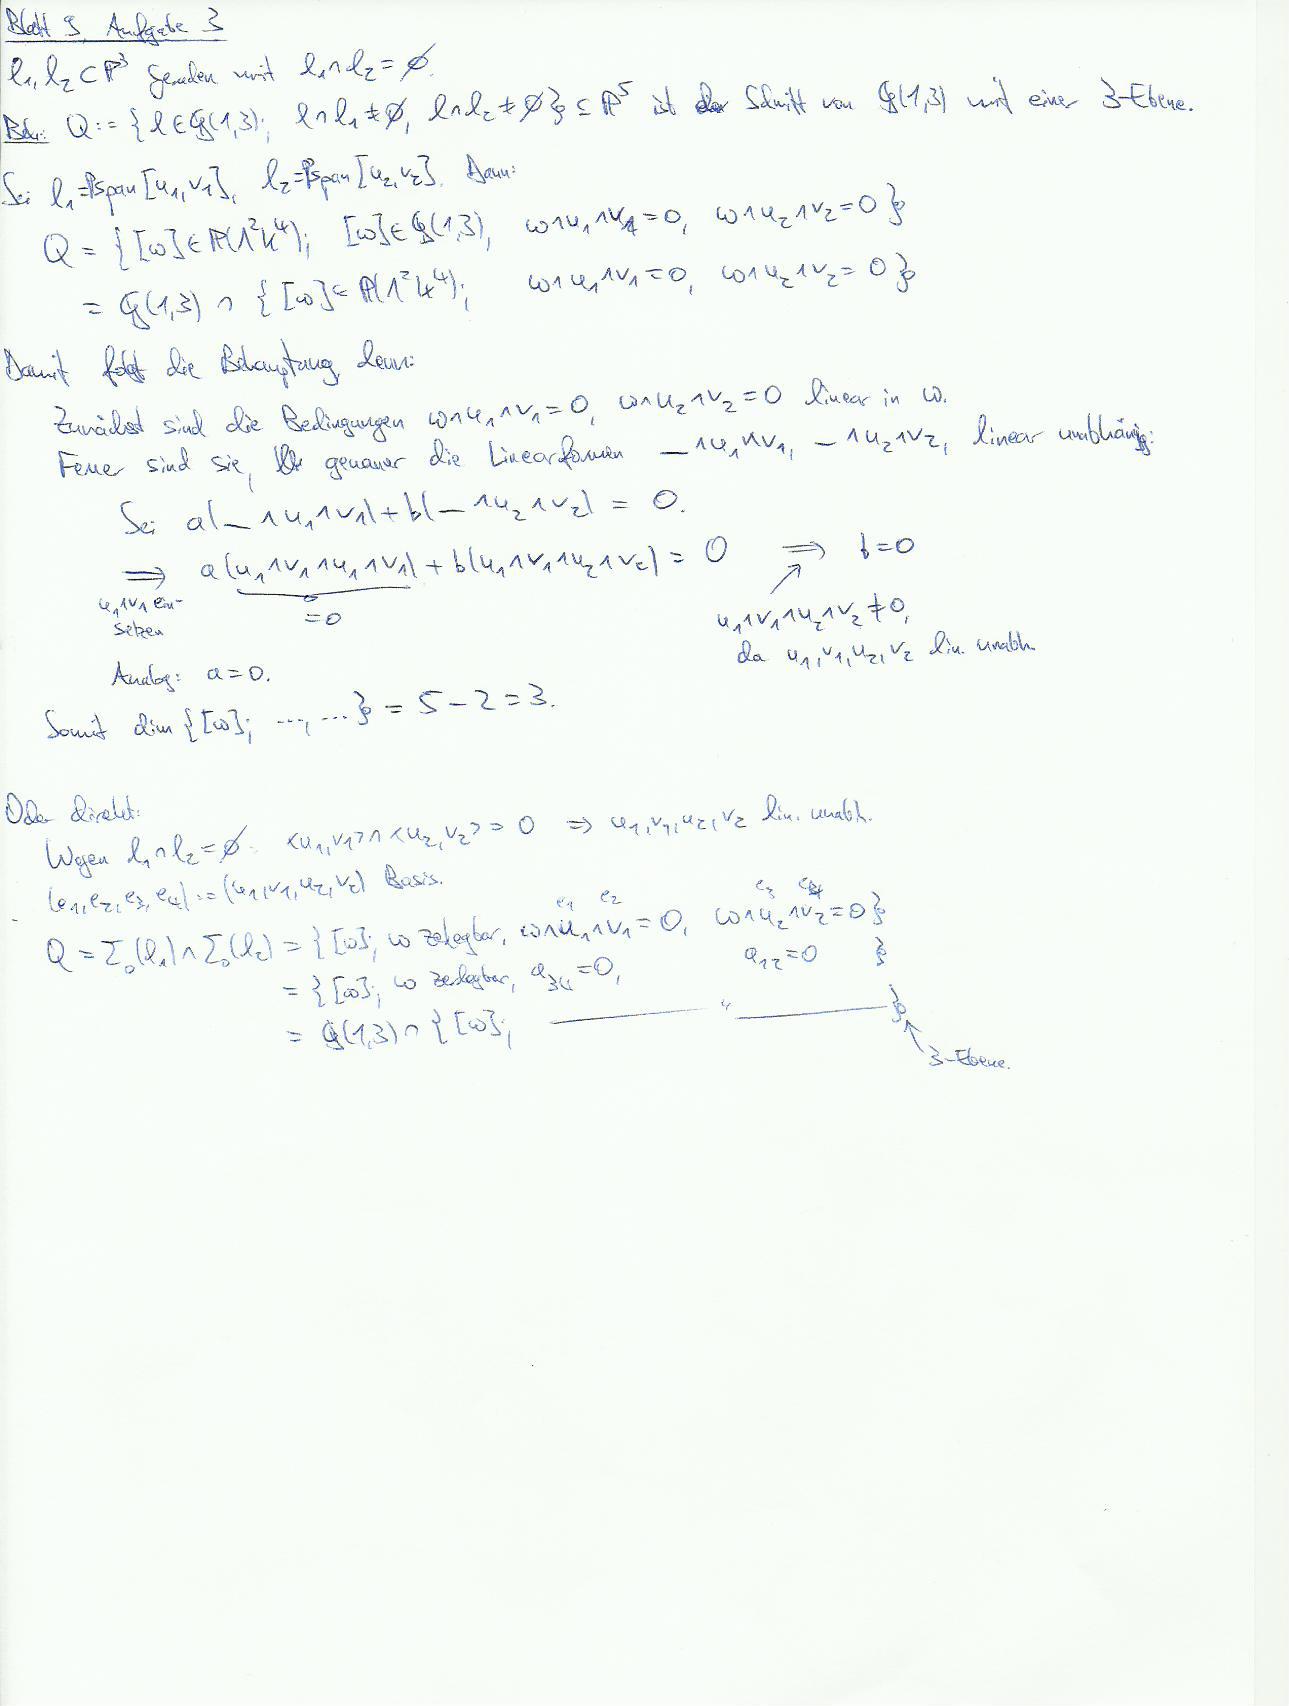 Blatt 9, Aufgabe 3
l₁, l₂ ⊂ ℙ³ Geraden mit l₁∩l₂ = ∅.
Beh.: Q := {l ∈ 𝔾(1,3); l∩l₁ ≠ ∅, l∩l₂ ≠ ∅} ⊆ ℙ⁵ ist der Schnitt von 𝔾(1,3) mit einer 3-Ebene.
Sei l₁ = ℙspan[u₁,v₁], l₂ = ℙspan[u₂,v₂]. Dann:
Q = {[ω] ∈ ℙ(Λ²k⁴); [ω] ∈ 𝔾(1,3), ω∧u₁∧v₁ = 0, ω∧u₂∧v₂ = 0}
= 𝔾(1,3) ∩ {[ω] ∈ ℙ(Λ²k⁴); ω∧u₁∧v₁ = 0, ω∧u₂∧v₂ = 0}
Damit folgt die Behauptung, denn:
Zunächst sind die Bedingungen ω∧u₁∧v₁ = 0, ω∧u₂∧v₂ = 0 linear in ω.
Ferner sind sie, genauer die Linearformen _∧u₁∧v₁, _∧u₂∧v₂, linear unabhängig:
Sei a(_∧u₁∧v₁) + b(_∧u₂∧v₂) = 0.
⟹ a(u₁∧v₁∧u₁∧v₁) + b(u₁∧v₁∧u₂∧v₂) = 0 ⟹ b = 0
u₁∧v₁ ein-
setzen
= 0
u₁∧v₁∧u₂∧v₂ ≠ 0,
da u₁,v₁,u₂,v₂ lin. unabh.
Analog: a = 0.
Somit dim {[ω]; ..., ...} = 5 − 2 = 3.
Oder direkt:
Wegen l₁∩l₂ = ∅: <u₁,v₁>∩<u₂,v₂> = 0 ⇒ u₁,v₁,u₂,v₂ lin. unabh.
(e₁,e₂,e₃,e₄) := (u₁,v₁,u₂,v₂) Basis.
e₁ e₂ e₃ e₄
Q = Σ₀(l₁)∩Σ₀(l₂) = {[ω]; ω zerlegbar, ω∧u₁∧v₁ = 0, ω∧u₂∧v₂ = 0}
= {[ω]; ω zerlegbar, a₃₄ = 0, a₁₂ = 0 }
= 𝔾(1,3) ∩ {[ω]; ——— " ——— }
3-Ebene.